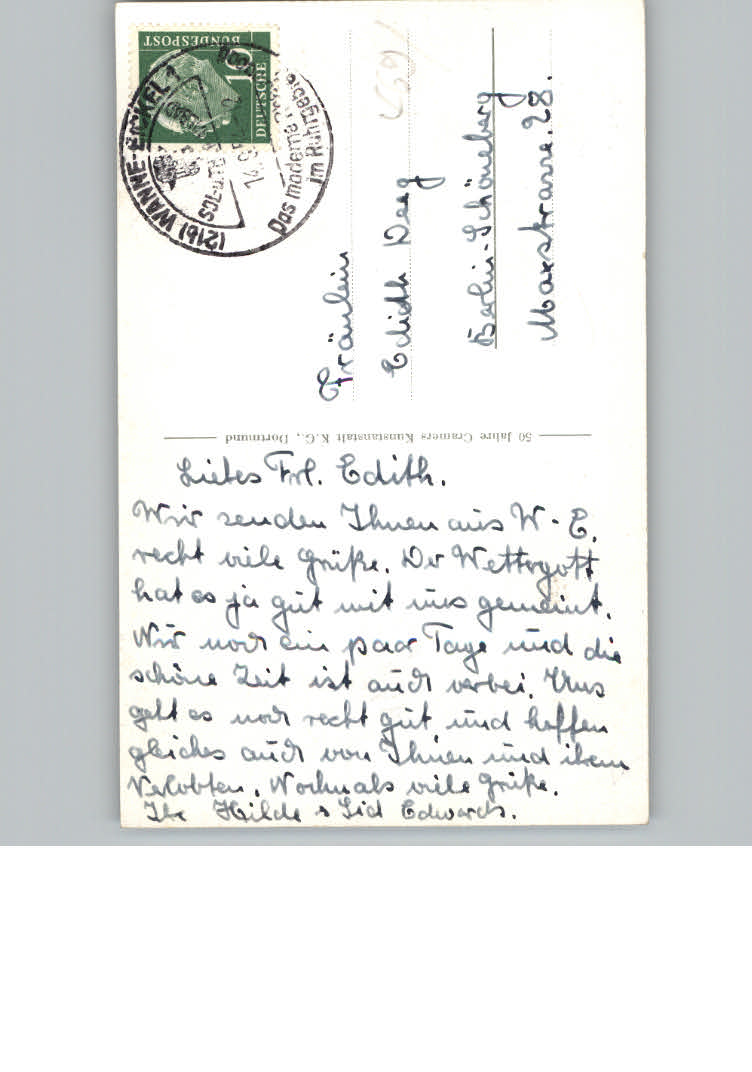 DEUTSCHE
BUNDESPOST
10
(21b) WANNE-EICKEL 1
SOL- u.
14.
Das moderne
im Ruhrgebiet
Fräulein
Edith Deeg
Berlin-Schöneberg
Maxstrasse. 28.
50 Jahre Cramers Kunstanstalt K.G., Dortmund
Liebes Frl. Edith.
Wir senden Ihnen aus W.-E.
recht viele Grüße. Der Wettergott
hat es ja gut mit uns gemeint.
Nur noch ein paar Tage und die
schöne Zeit ist auch vorbei. Uns
geht es noch recht gut und hoffen
gleiches auch von Ihnen und ihrem
Verlobten. Nochmals viele Grüße.
Ihr Hilde & Sid Edwards.